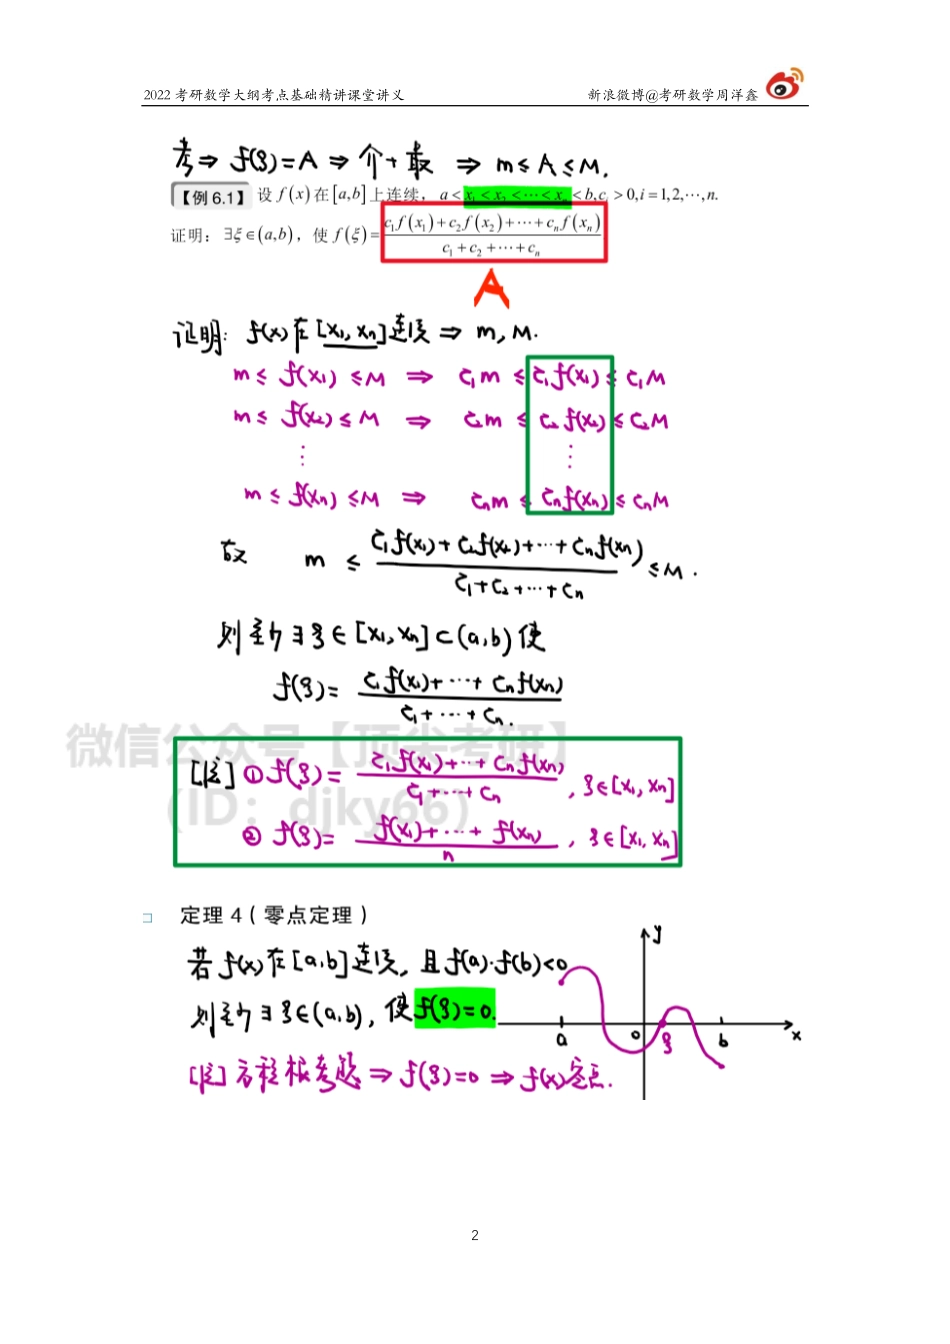 2022 考研数学大纲考点基础精讲课堂讲义 新浪微博@考研数学周洋鑫
考⇒ f(ξ)=A ⇒ 介+最 ⇒ m≤A≤M.
【例 6.1】 设 f(x) 在 [a,b] 上连续， a<x₁<x₂<⋯<xₙ<b,cᵢ>0,i=1,2,⋯,n.
证明：∃ξ∈(a,b)，使 f(ξ)= (c₁f(x₁)+c₂f(x₂)+⋯+cₙf(xₙ))/(c₁+c₂+⋯+cₙ)
A
证明: f(x)在[x₁,xₙ]连续 ⇒ m, M.
m≤ f(x₁) ≤M ⇒ c₁m ≤ c₁f(x₁) ≤ c₁M
m≤ f(x₂) ≤M ⇒ c₂m ≤ c₂f(x₂) ≤ c₂M
⋮ ⋮
m≤ f(xₙ) ≤M ⇒ cₙm ≤ cₙf(xₙ) ≤ cₙM
故 m ≤ (c₁f(x₁)+c₂f(x₂)+⋯+cₙf(xₙ))/(c₁+c₂+⋯+cₙ) ≤M.
则至少∃ξ∈[x₁,xₙ]⊂(a,b)使
f(ξ)= (c₁f(x₁)+⋯+cₙf(xₙ))/(c₁+⋯+cₙ).
微信公众号【顶尖考研】
(ID：djky66)
[注] ① f(ξ)= (c₁f(x₁)+⋯+cₙf(xₙ))/(c₁+⋯+cₙ) , ξ∈[x₁,xₙ]
② f(ξ)= (f(x₁)+⋯+f(xₙ))/n , ξ∈[x₁,xₙ]
定理 4（零点定理）
若 f(x)在[a,b]连续, 且 f(a)·f(b)<0
则至少∃ξ∈(a,b), 使 f(ξ)=0.
[注] 方程根考题 ⇒ f(ξ)=0 ⇒ f(x)零点.
y
a 0 ξ b x
2